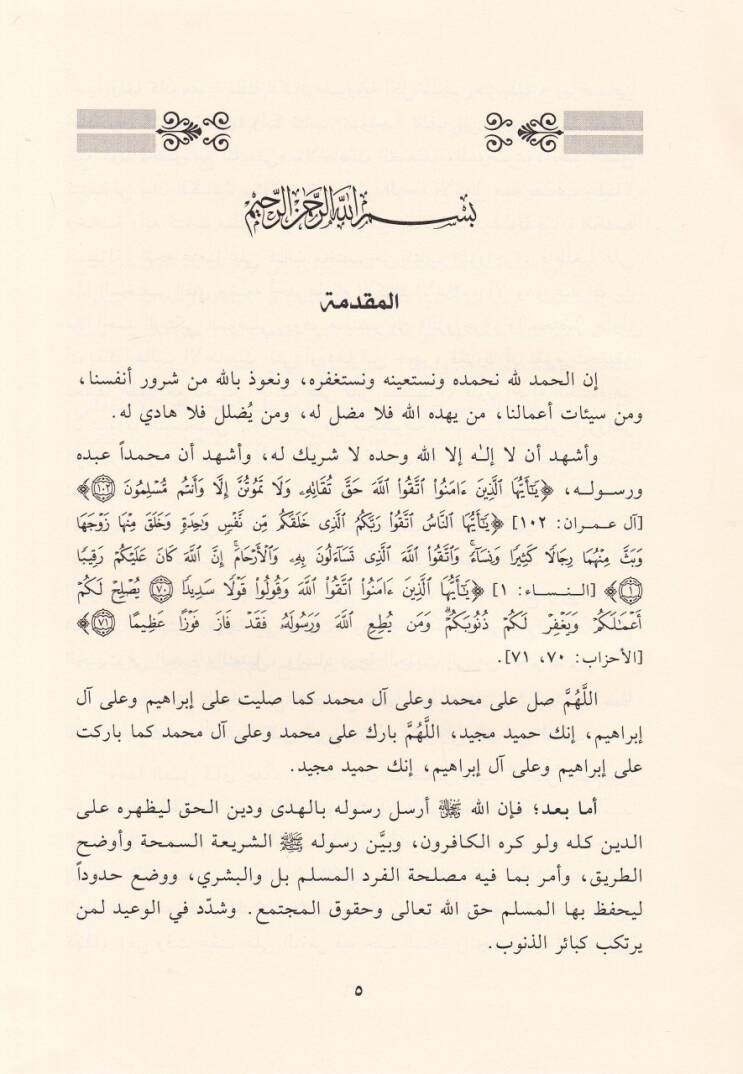 بسم الله الرحمن الرحيم
المقدمة
إن الحمد لله نحمده ونستعينه ونستغفره، ونعوذ بالله من شرور أنفسنا،
ومن سيئات أعمالنا، من يهده الله فلا مضل له، ومن يُضلل فلا هادي له.
وأشهد أن لا إلـٰه إلا الله وحده لا شريك له، وأشهد أن محمداً عبده
ورسولـه، ﴿يَٰٓأَيُّهَا ٱلَّذِينَ ءَامَنُوا۟ ٱتَّقُوا۟ ٱللَّهَ حَقَّ تُقَاتِهِۦ وَلَا تَمُوتُنَّ إِلَّا وَأَنتُم مُّسْلِمُونَ ١٠٢﴾
[آل عـمـران: ١٠٢] ﴿يَٰٓأَيُّهَا ٱلنَّاسُ ٱتَّقُوا۟ رَبَّكُمُ ٱلَّذِى خَلَقَكُم مِّن نَّفْسٍ وَٰحِدَةٍ وَخَلَقَ مِنْهَا زَوْجَهَا
وَبَثَّ مِنْهُمَا رِجَالًا كَثِيرًا وَنِسَآءً ۚ وَٱتَّقُوا۟ ٱللَّهَ ٱلَّذِى تَسَآءَلُونَ بِهِۦ وَٱلْأَرْحَامَ ۚ إِنَّ ٱللَّهَ كَانَ عَلَيْكُمْ رَقِيبًا
١﴾ [الـنـسـاء: ١] ﴿يَٰٓأَيُّهَا ٱلَّذِينَ ءَامَنُوا۟ ٱتَّقُوا۟ ٱللَّهَ وَقُولُوا۟ قَوْلًا سَدِيدًا ٧٠ يُصْلِحْ لَكُمْ
أَعْمَٰلَكُمْ وَيَغْفِرْ لَكُمْ ذُنُوبَكُمْ ۗ وَمَن يُطِعِ ٱللَّهَ وَرَسُولَهُۥ فَقَدْ فَازَ فَوْزًا عَظِيمًا ٧١﴾
[الأحزاب: ٧٠، ٧١].
اللَّهُمَّ صل على محمد وعلى آل محمد كما صليت على إبراهيم وعلى آل
إبراهيم، إنك حميد مجيد، اللَّهُمَّ بارك على محمد وعلى آل محمد كما باركت
على إبراهيم وعلى آل إبراهيم، إنك حميد مجيد.
أما بعد؛ فإن الله ﷻ أرسل رسوله بالهدى ودين الحق ليظهره على
الدين كله ولو كره الكافرون، وبيَّن رسوله ﷺ الشريعة السمحة وأوضح
الطريق، وأمر بما فيه مصلحة الفرد المسلم بل والبشري، ووضع حدوداً
ليحفظ بها المسلم حق الله تعالى وحقوق المجتمع. وشدّد في الوعيد لمن
يرتكب كبائر الذنوب.
٥